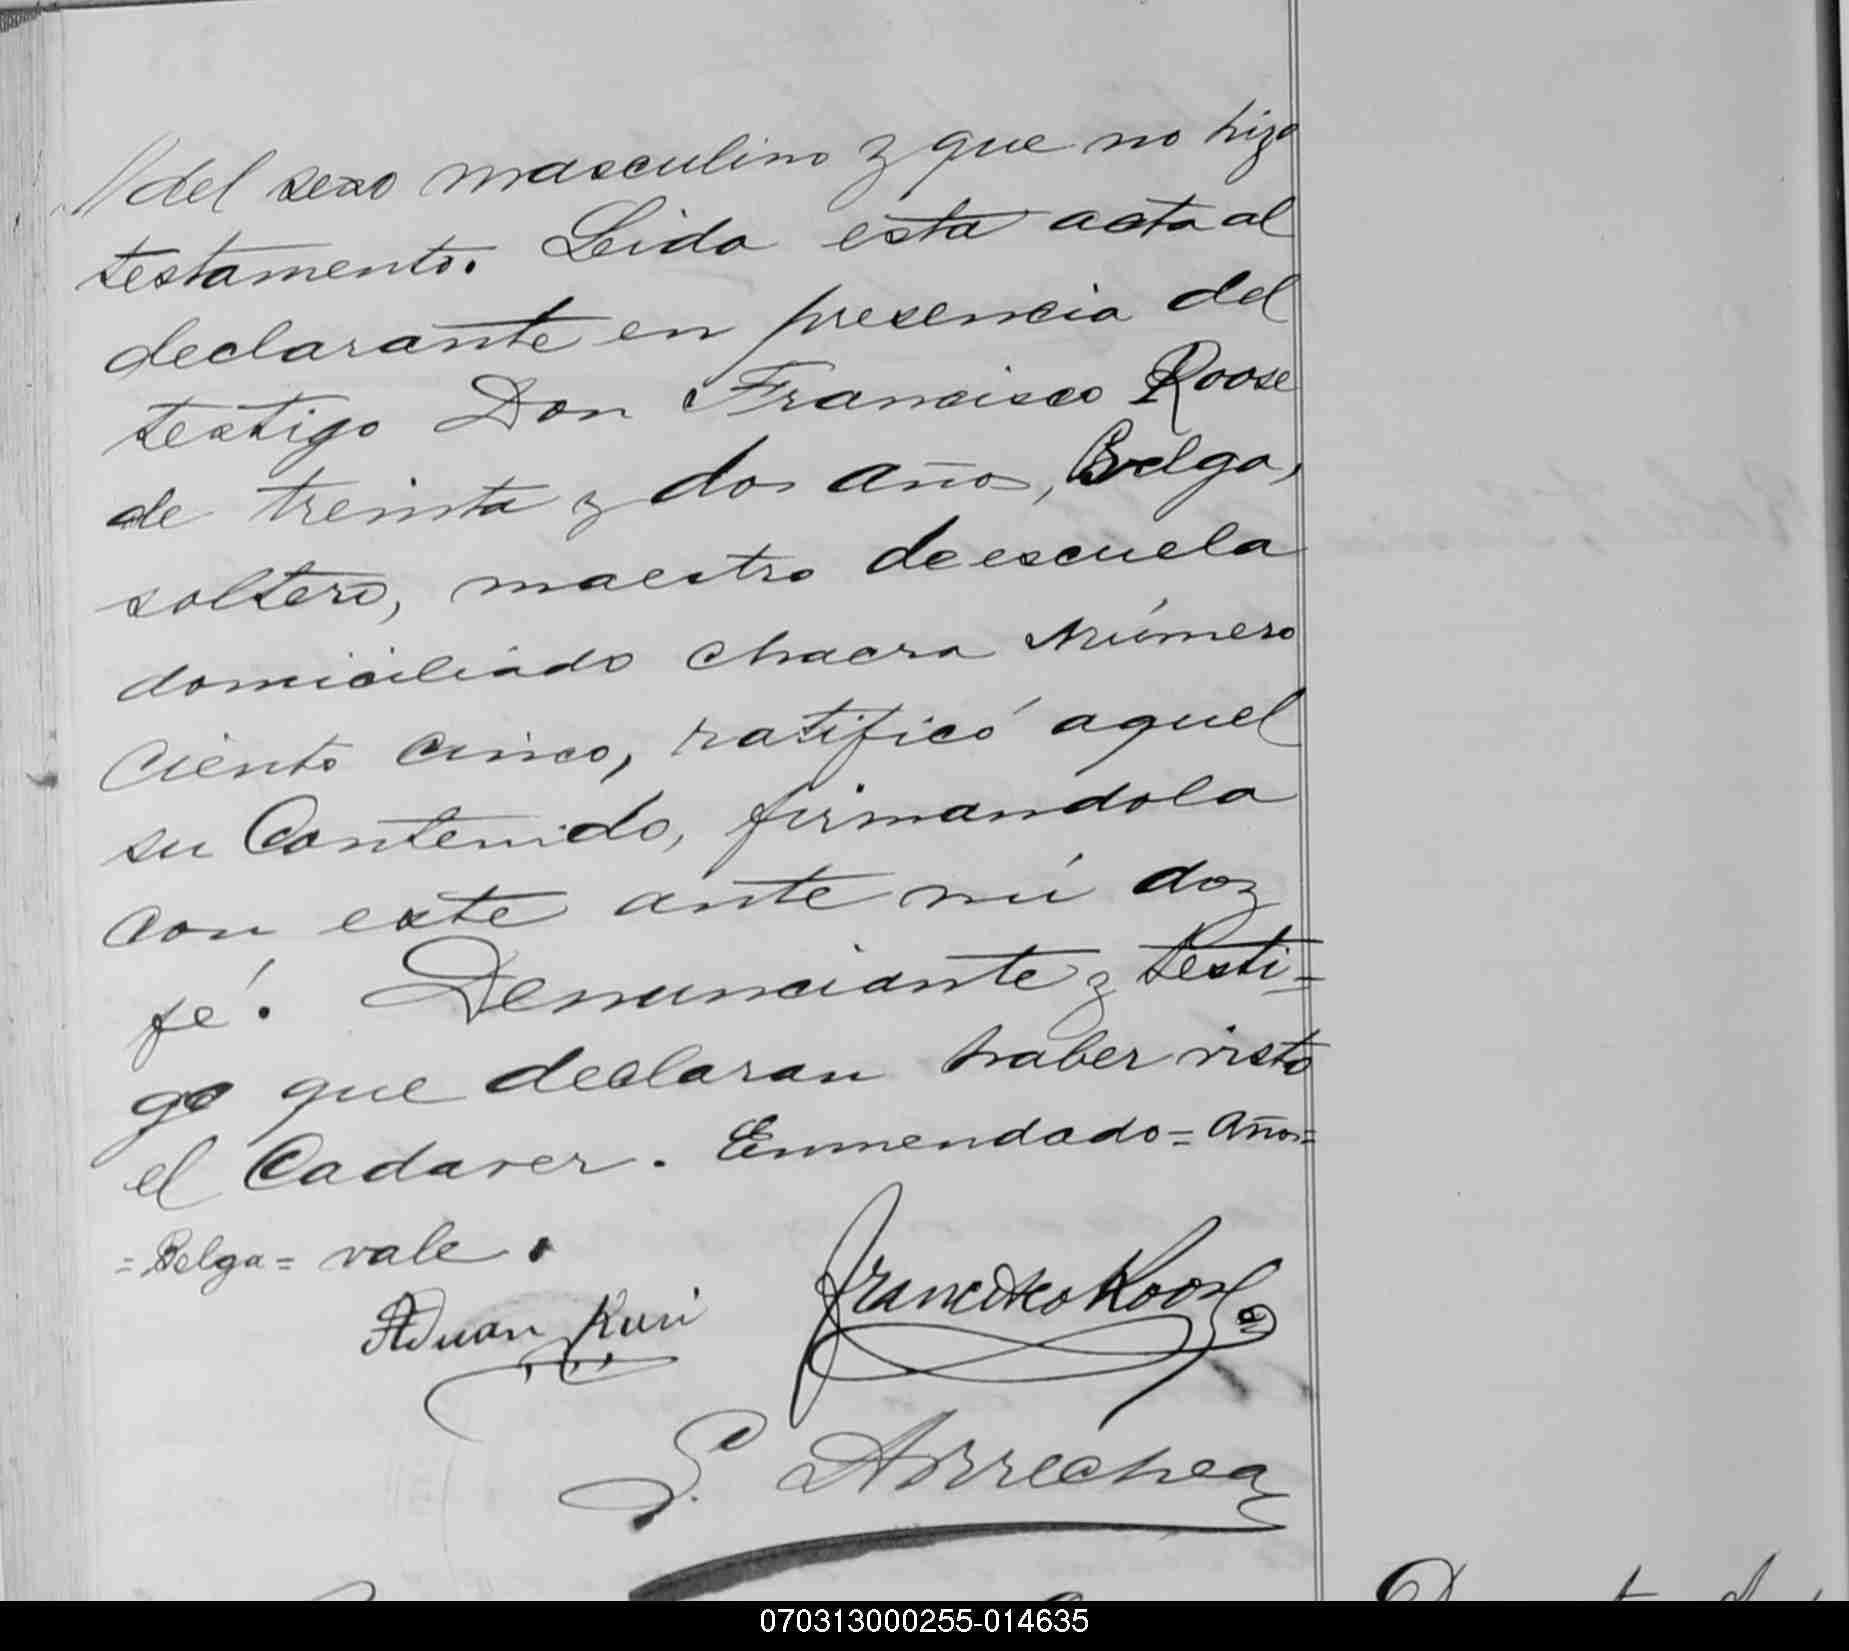 //del sexo masculino y que no hizo
testamento. Leida esta acta al
declarante en presencia del
testigo Don Francisco Roose
de treinta y dos años, Belga,
soltero, maestro de escuela
domiciliado chacra Número
ciento cinco, ratificó aquel
su Contenido, firmandola
con este ante mí doy
fé. Denunciante y testi=
go que declaran haber visto
el Cadaver. Enmendado = Años=
= Belga = vale.
Aduan Kuri Francisco Roose
S. Arrechea
070313000255-014635